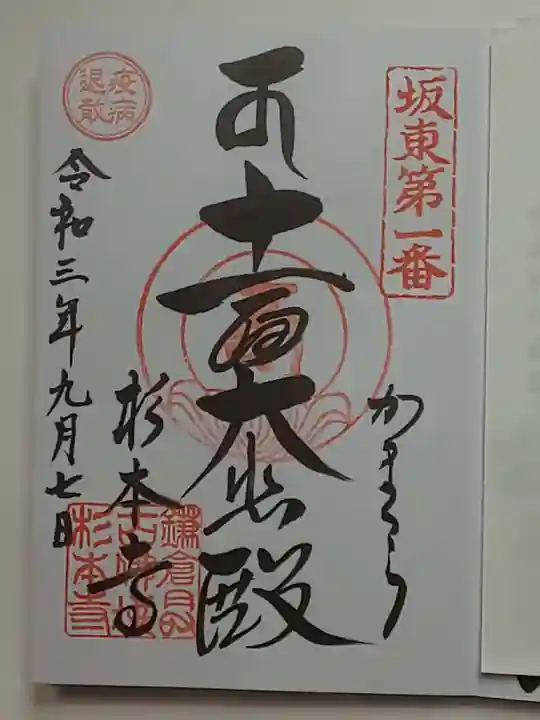 坂東第一番
かまくら
十一面大悲殿
杉本寺
疫病
退散
令和三年九月七日
杉本寺